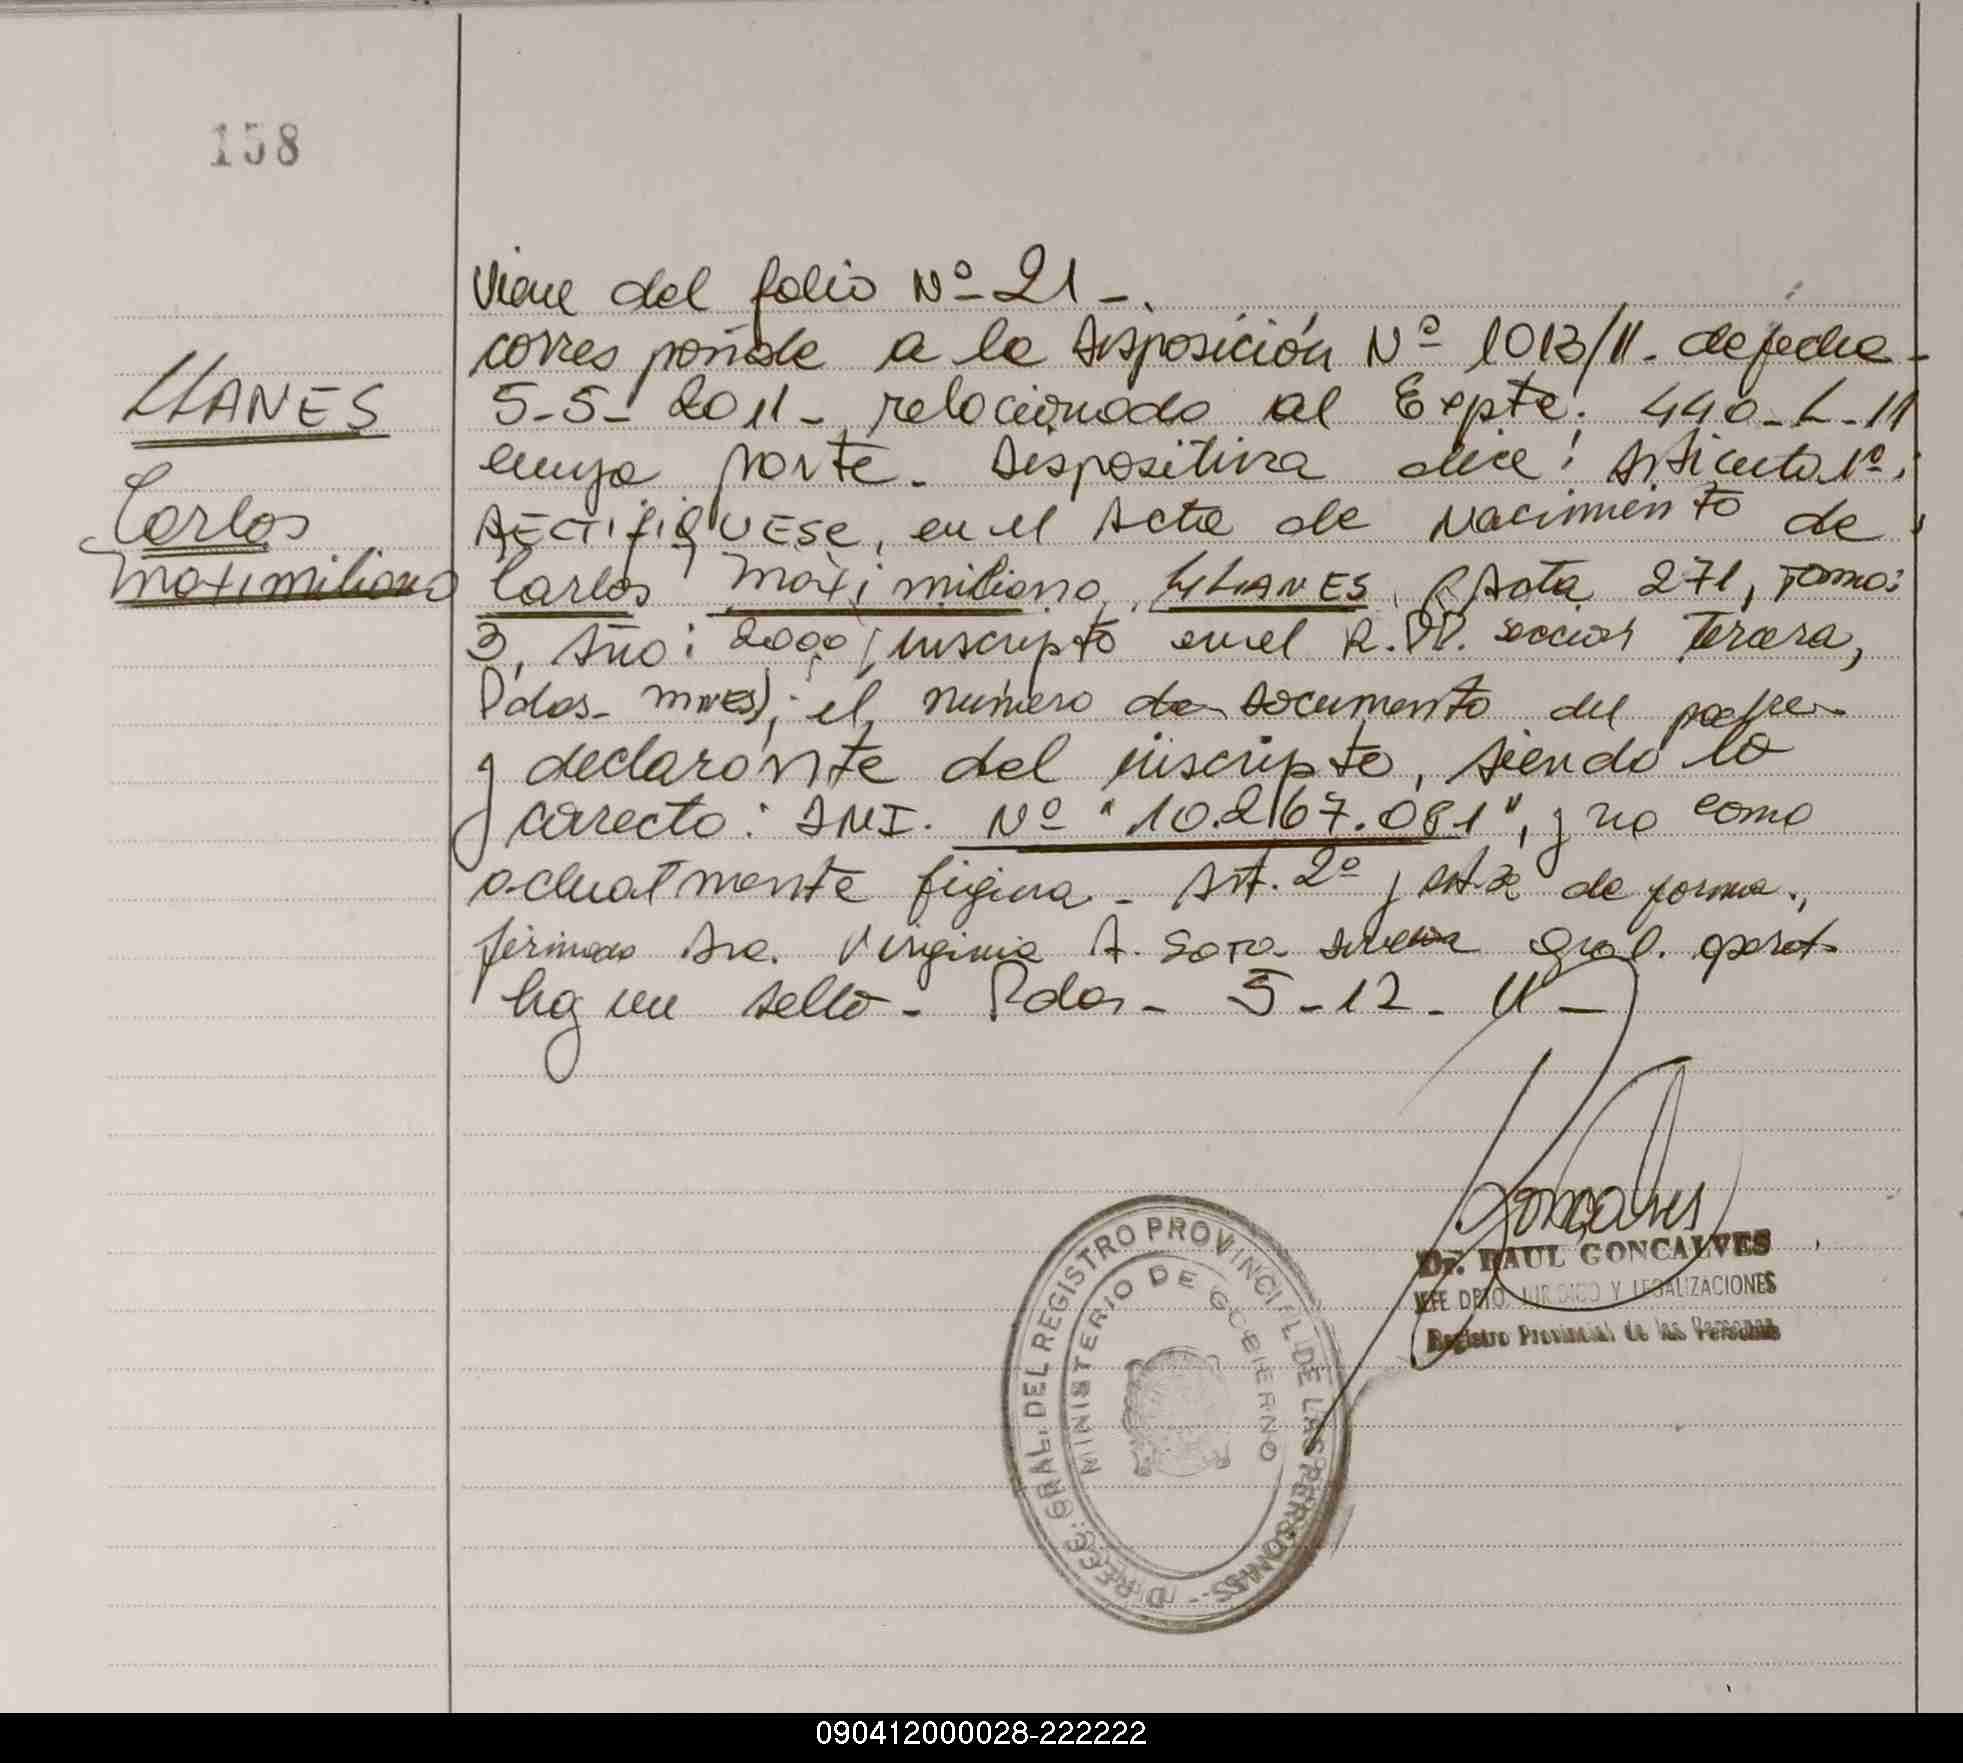 158
LLANES
Carlos
Maximiliano
Viene del folio Nº 21 -.
corresponde a la Disposición Nº 1013/11. de fecha -
5-5-2011- relacionado al Expte: 440-L-11
cuya parte - Dispositiva dice: Articulo 1º:
RECTIFIQUESE, en el Acta de Nacimiento de
Carlos Maximiliano LLANES (Acta 271, Tomo:
3, Año: 2000, inscripto en el R.PP. seccion Tercera,
Pdas - Mnes); el numero de Documento del padre
y declarante del inscripto, siendo lo
correcto: DNI. Nº "10.267.081", y no como
actualmente figura - Art. 2º y Art 3º de forma.,
firmado Dra. Virginia A. Sosa Gral. operat.
hay un sello - Pdas - 5-12-11 -
Goncalves
Dr. RAUL GONCALVES
JEFE DPTO. JURIDICO Y LEGALIZACIONES
Registro Provincial de las Personas
DIREC. GRAL. DEL REGISTRO PROVINCIAL DE LAS PERSONAS
MINISTERIO DE GOBIERNO
090412000028-222222